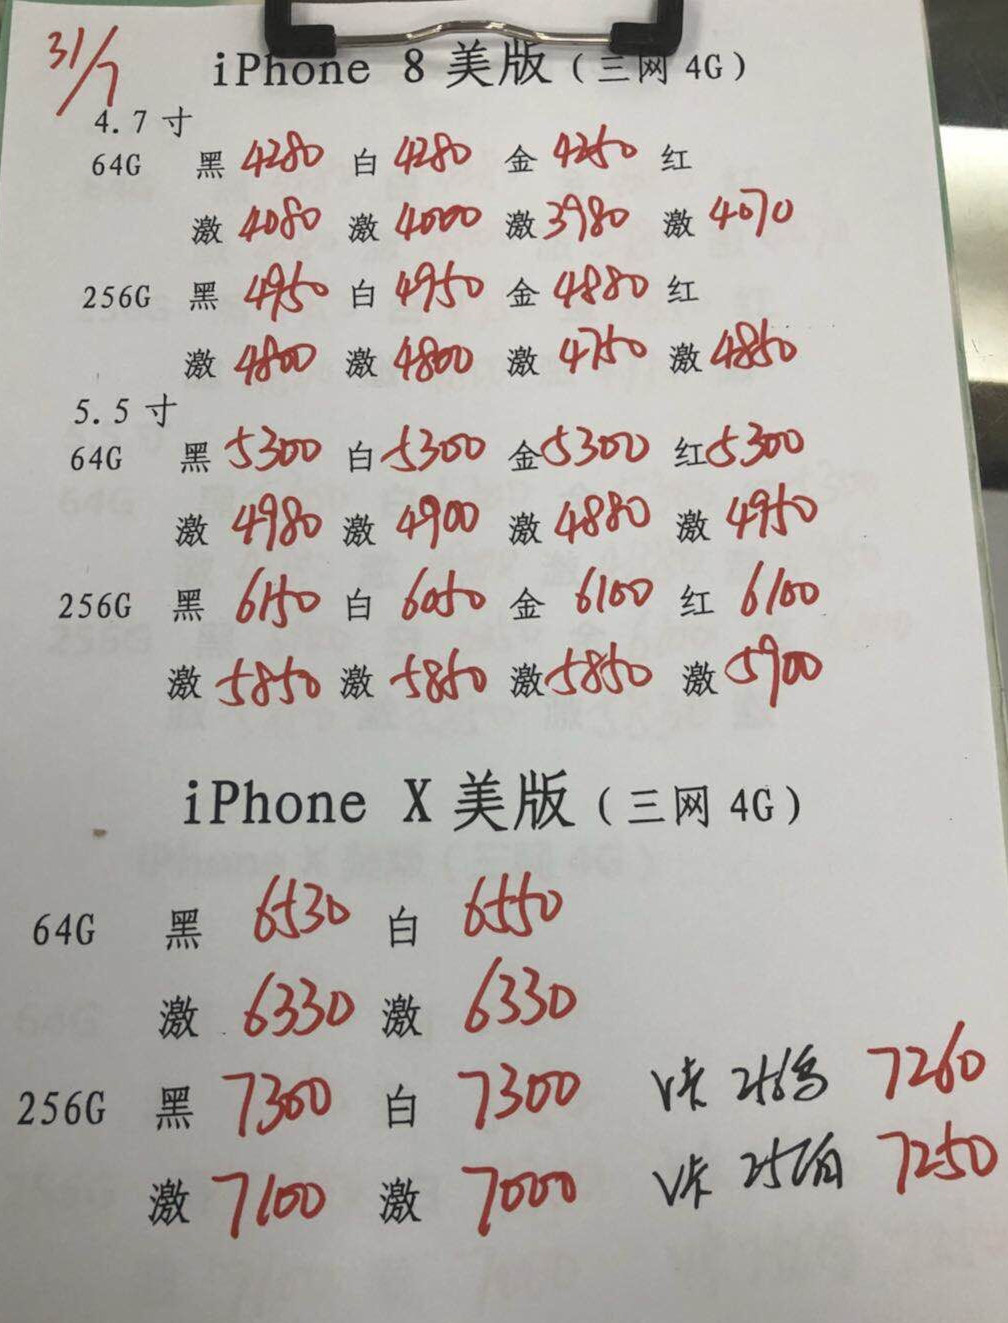 31/7
iPhone 8 美版（三网 4G）
4.7 寸
64G 黑 4280 白 4280 金 4250 红
激 4080 激 4000 激 3980 激 4070
256G 黑 4950 白 4950 金 4880 红
激 4800 激 4800 激 4750 激 4850
5.5 寸
64G 黑 5300 白 5300 金 5300 红 5300
激 4980 激 4900 激 4880 激 4950
256G 黑 6150 白 6050 金 6100 红 6100
激 5850 激 5850 激 5850 激 5900
iPhone X 美版（三网 4G）
64G 黑 6530 白 6550
激 6330 激 6330
256G 黑 7300 白 7300 V卡 256 7260
激 7100 激 7000 V卡 256白 7250